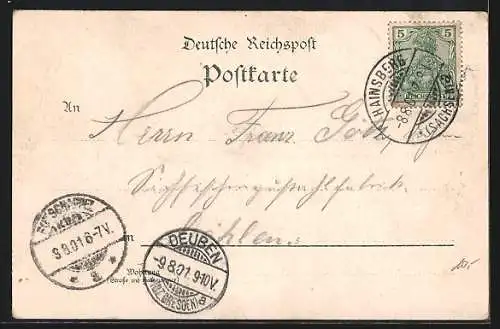 Deutsche Reichspost
Postkarte
5 5
REICHSPOST
HAINSBERG
-8.8.01
(SACHSEN)
An
Herrn Franz
Sächsische Gussstahlfabrik
in Döhlen
POTSCHAPPEL
9.8.01.6-7V.
* a
DEUBEN
-9.8.01.9-10V.
(BZ. DRESDEN) a
Wohnung
(Straße und Hausnummer)